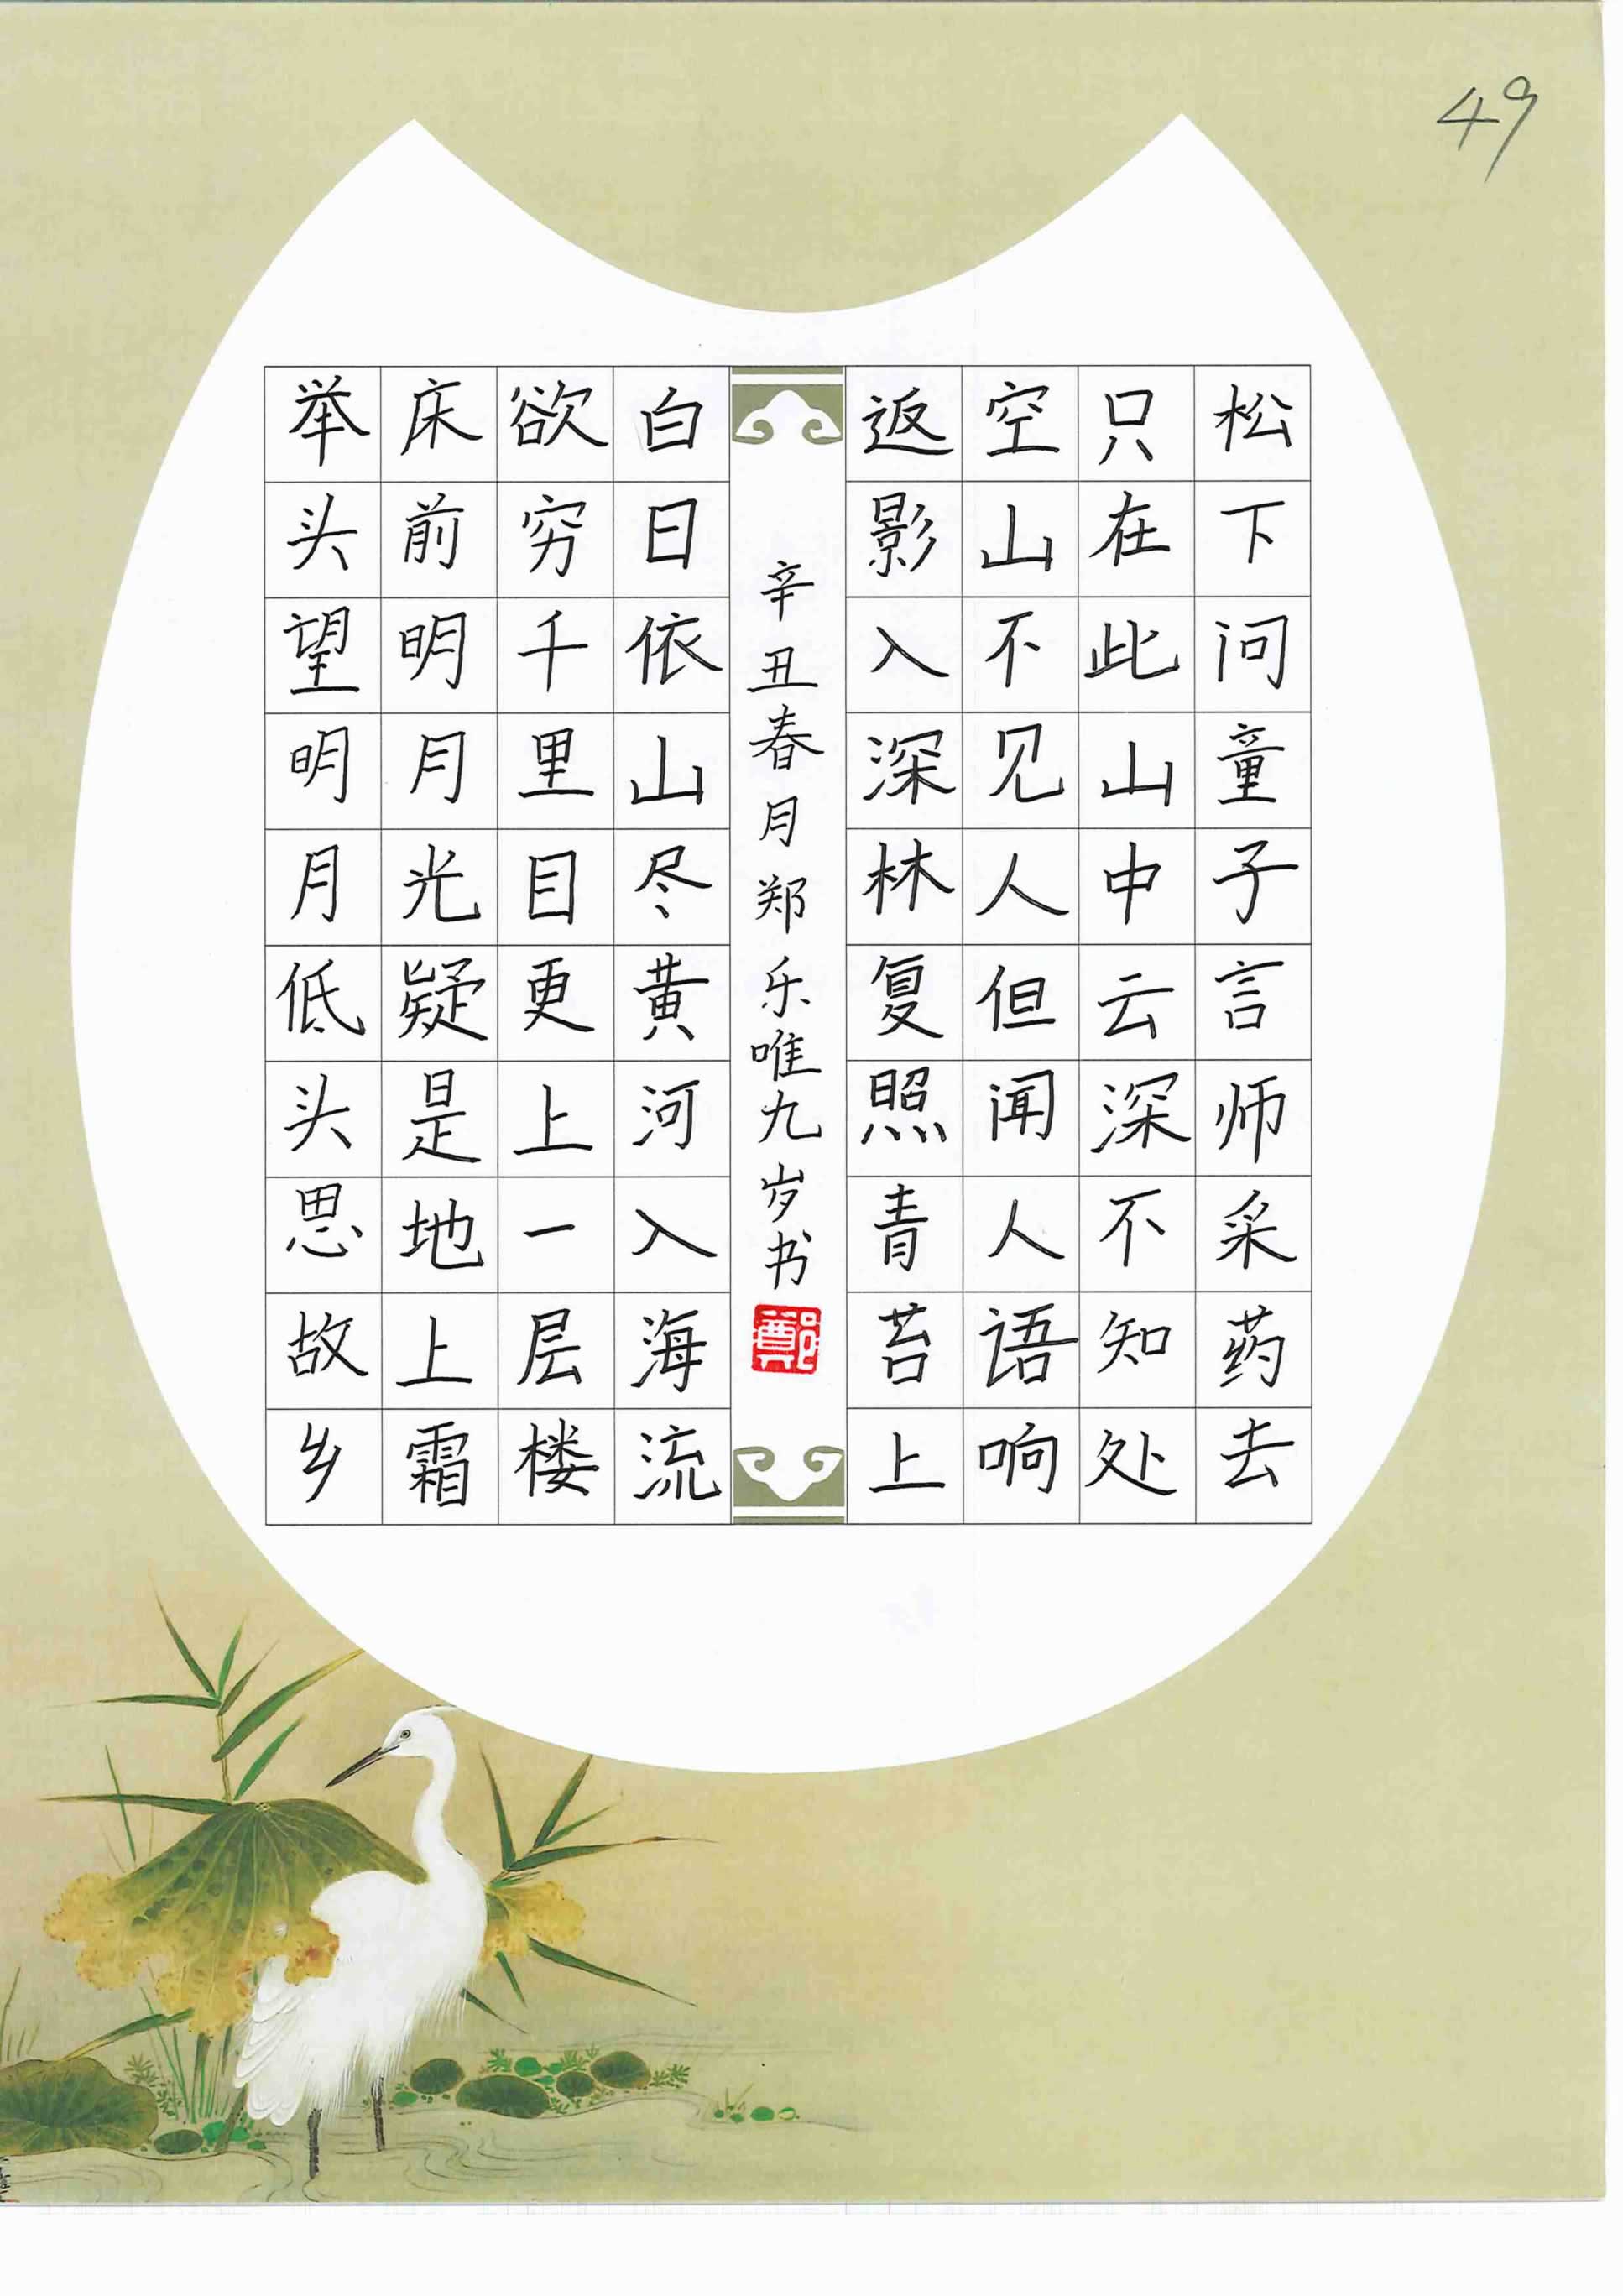 49
松下问童子言师采药去
只在此山中云深不知处
空山不见人但闻人语响
返影入深林复照青苔上
辛丑春月郑乐唯九岁书
鄭
白日依山尽黄河入海流
欲穷千里目更上一层楼
床前明月光疑是地上霜
举头望明月低头思故乡